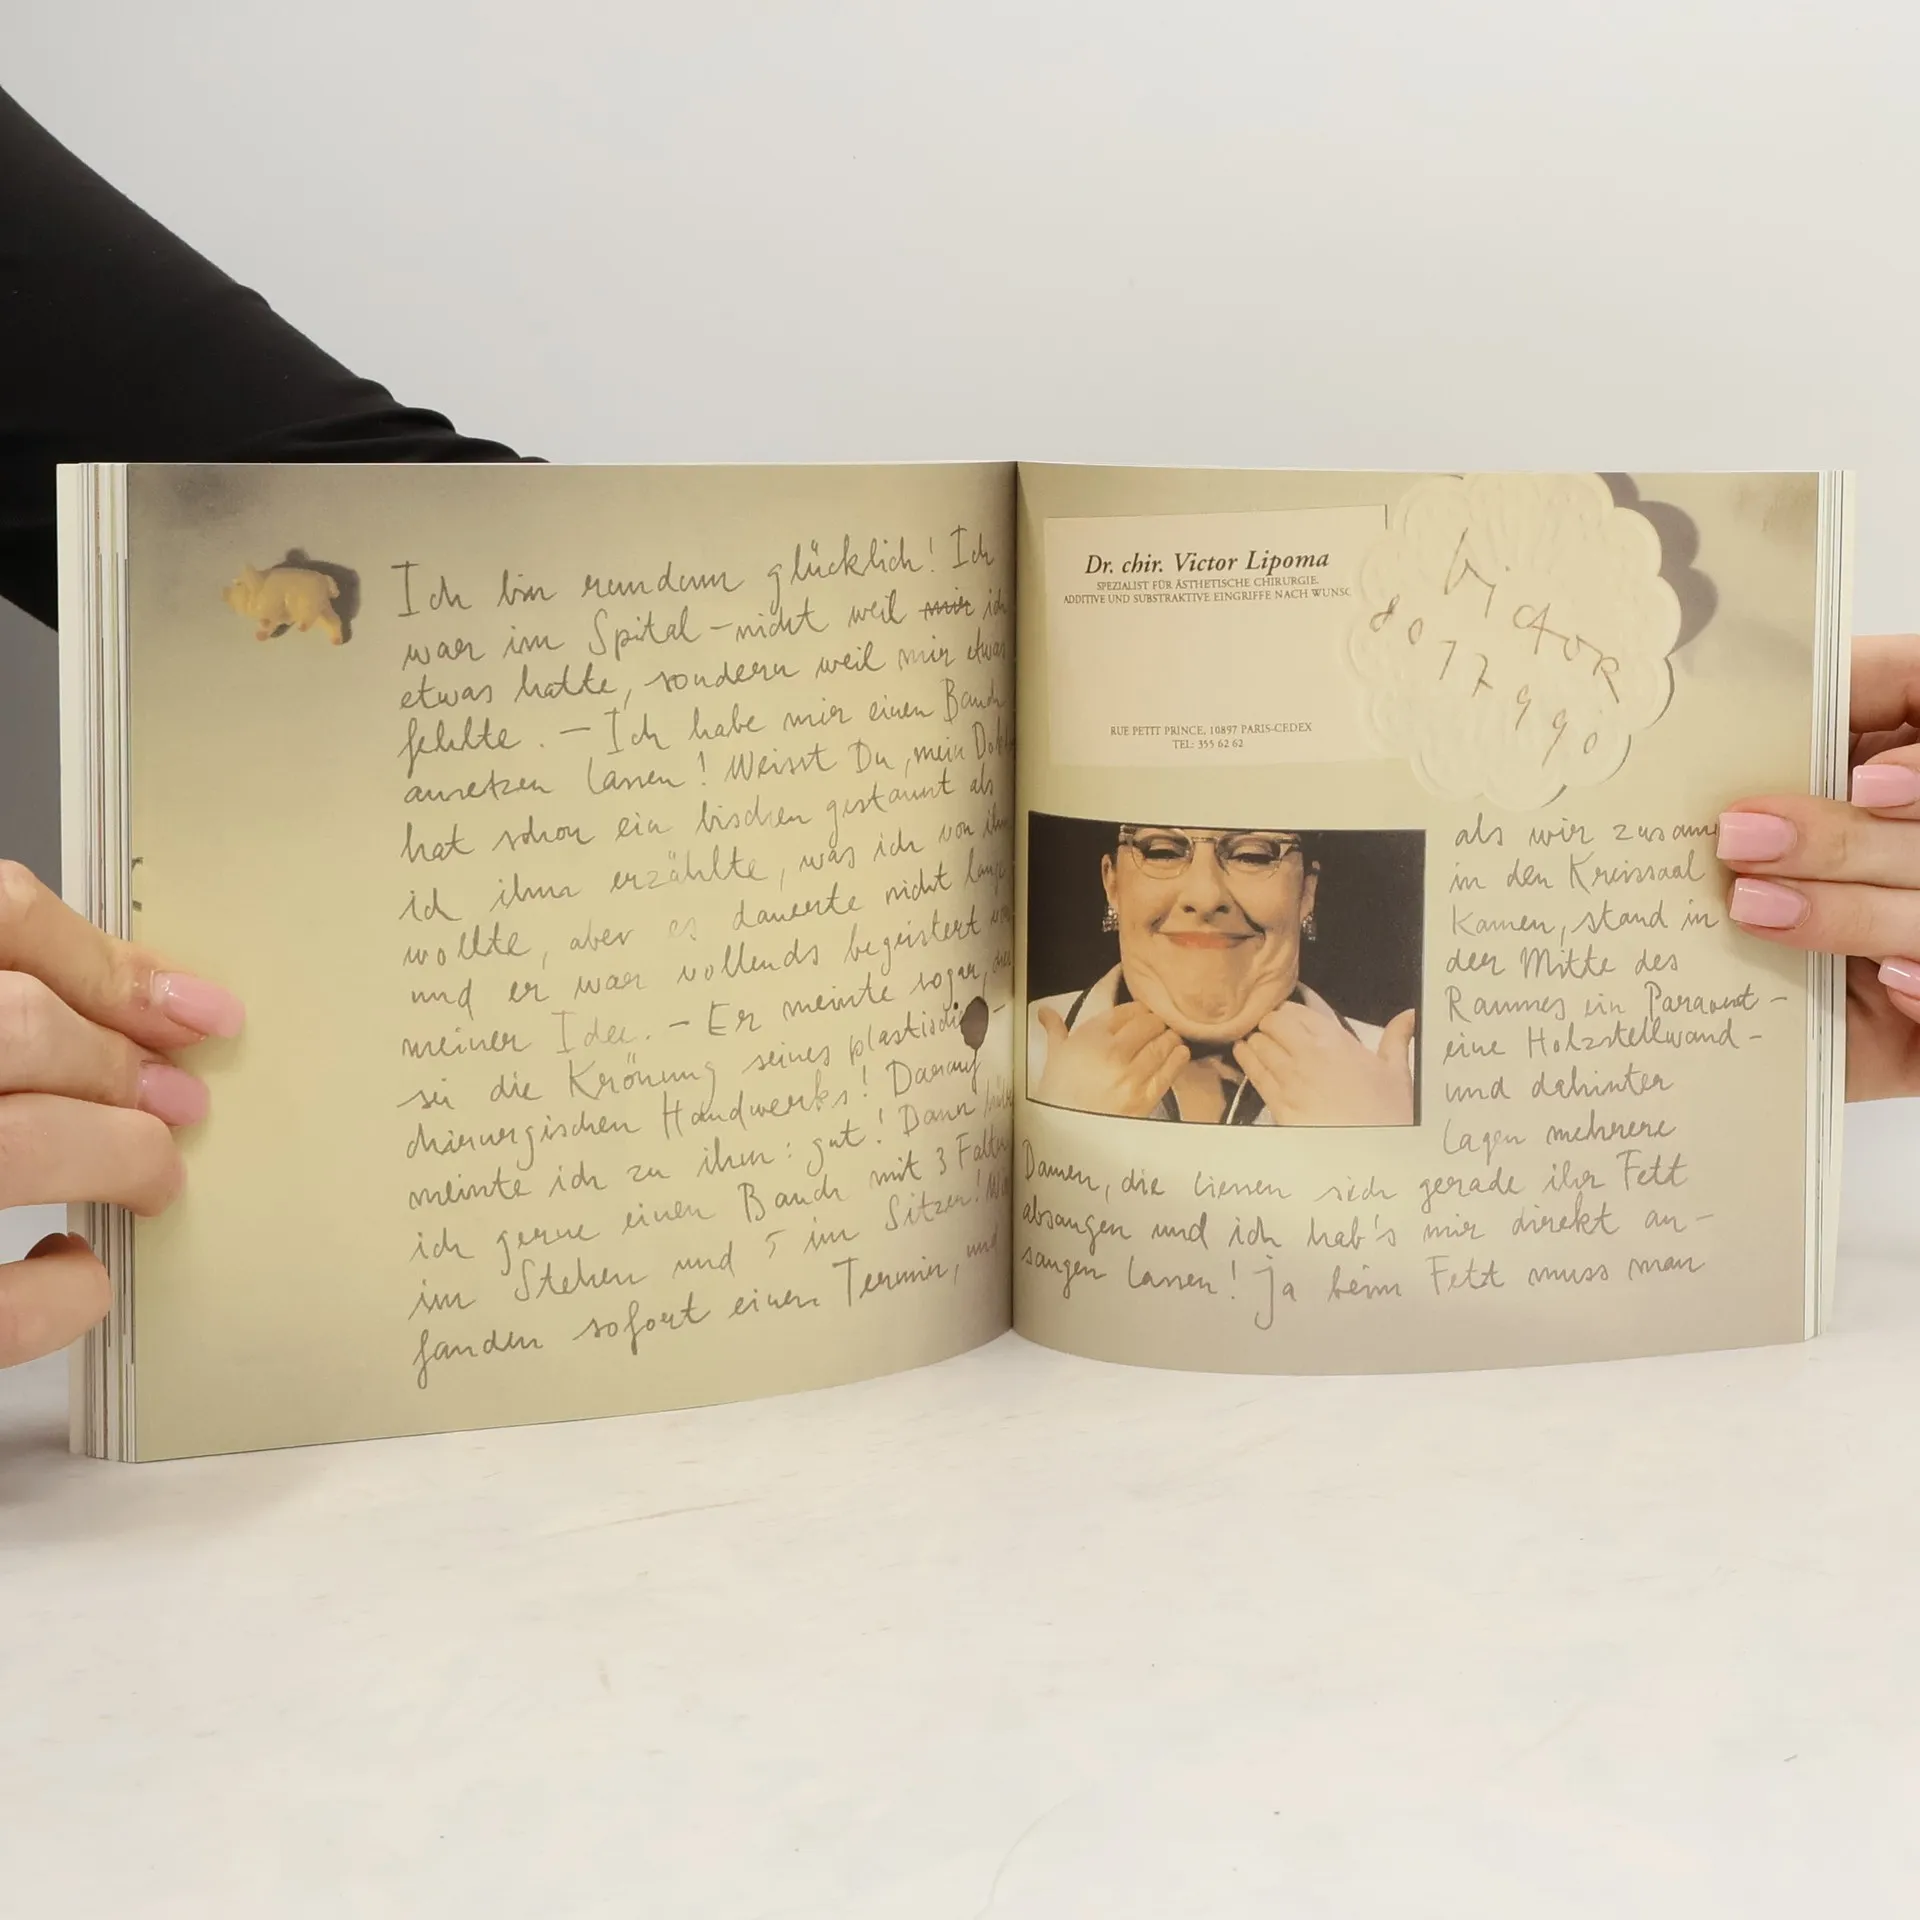 Ich bin rundum glücklich! Ich
war im Spital – nicht weil mir ich
etwas hatte, sondern weil mir etwas
fehlte. – Ich habe mir einen Bauch
ansetzen lassen! Weisst Du, mein Dokt
hat schon ein bischen gestaunt als
ich ihm erzählte, was ich von ihm
wollte, aber es dauerte nicht lang
und er war vollends begeistert von
meiner Idee. – Er meinte sogar,
sei die Krönung seines plastisch-
chirurgischen Handwerks! Darauf
meinte ich zu ihm: gut! Dann hätt
ich gerne einen Bauch mit 3 Falten
im Stehen und 5 im Sitzen! Wir
fanden sofort einen Termin, und
Dr. chir. Victor Lipoma
SPEZIALIST FÜR ÄSTHETISCHE CHIRURGIE.
ADDITIVE UND SUBSTRAKTIVE EINGRIFFE NACH WUNSC
RUE PETIT PRINCE, 10897 PARIS-CEDEX
TEL: 355 62 62
victor
8077990
als wir zusamm
in den Kreissaal
kamen, stand in
der Mitte des
Raumes ein Paravent –
eine Holzstellwand –
und dahinter
lagen mehrere
Damen, die liessen sich gerade ihr Fett
absaugen und ich hab's mir direkt an-
saugen lassen! Ja beim Fett muss man